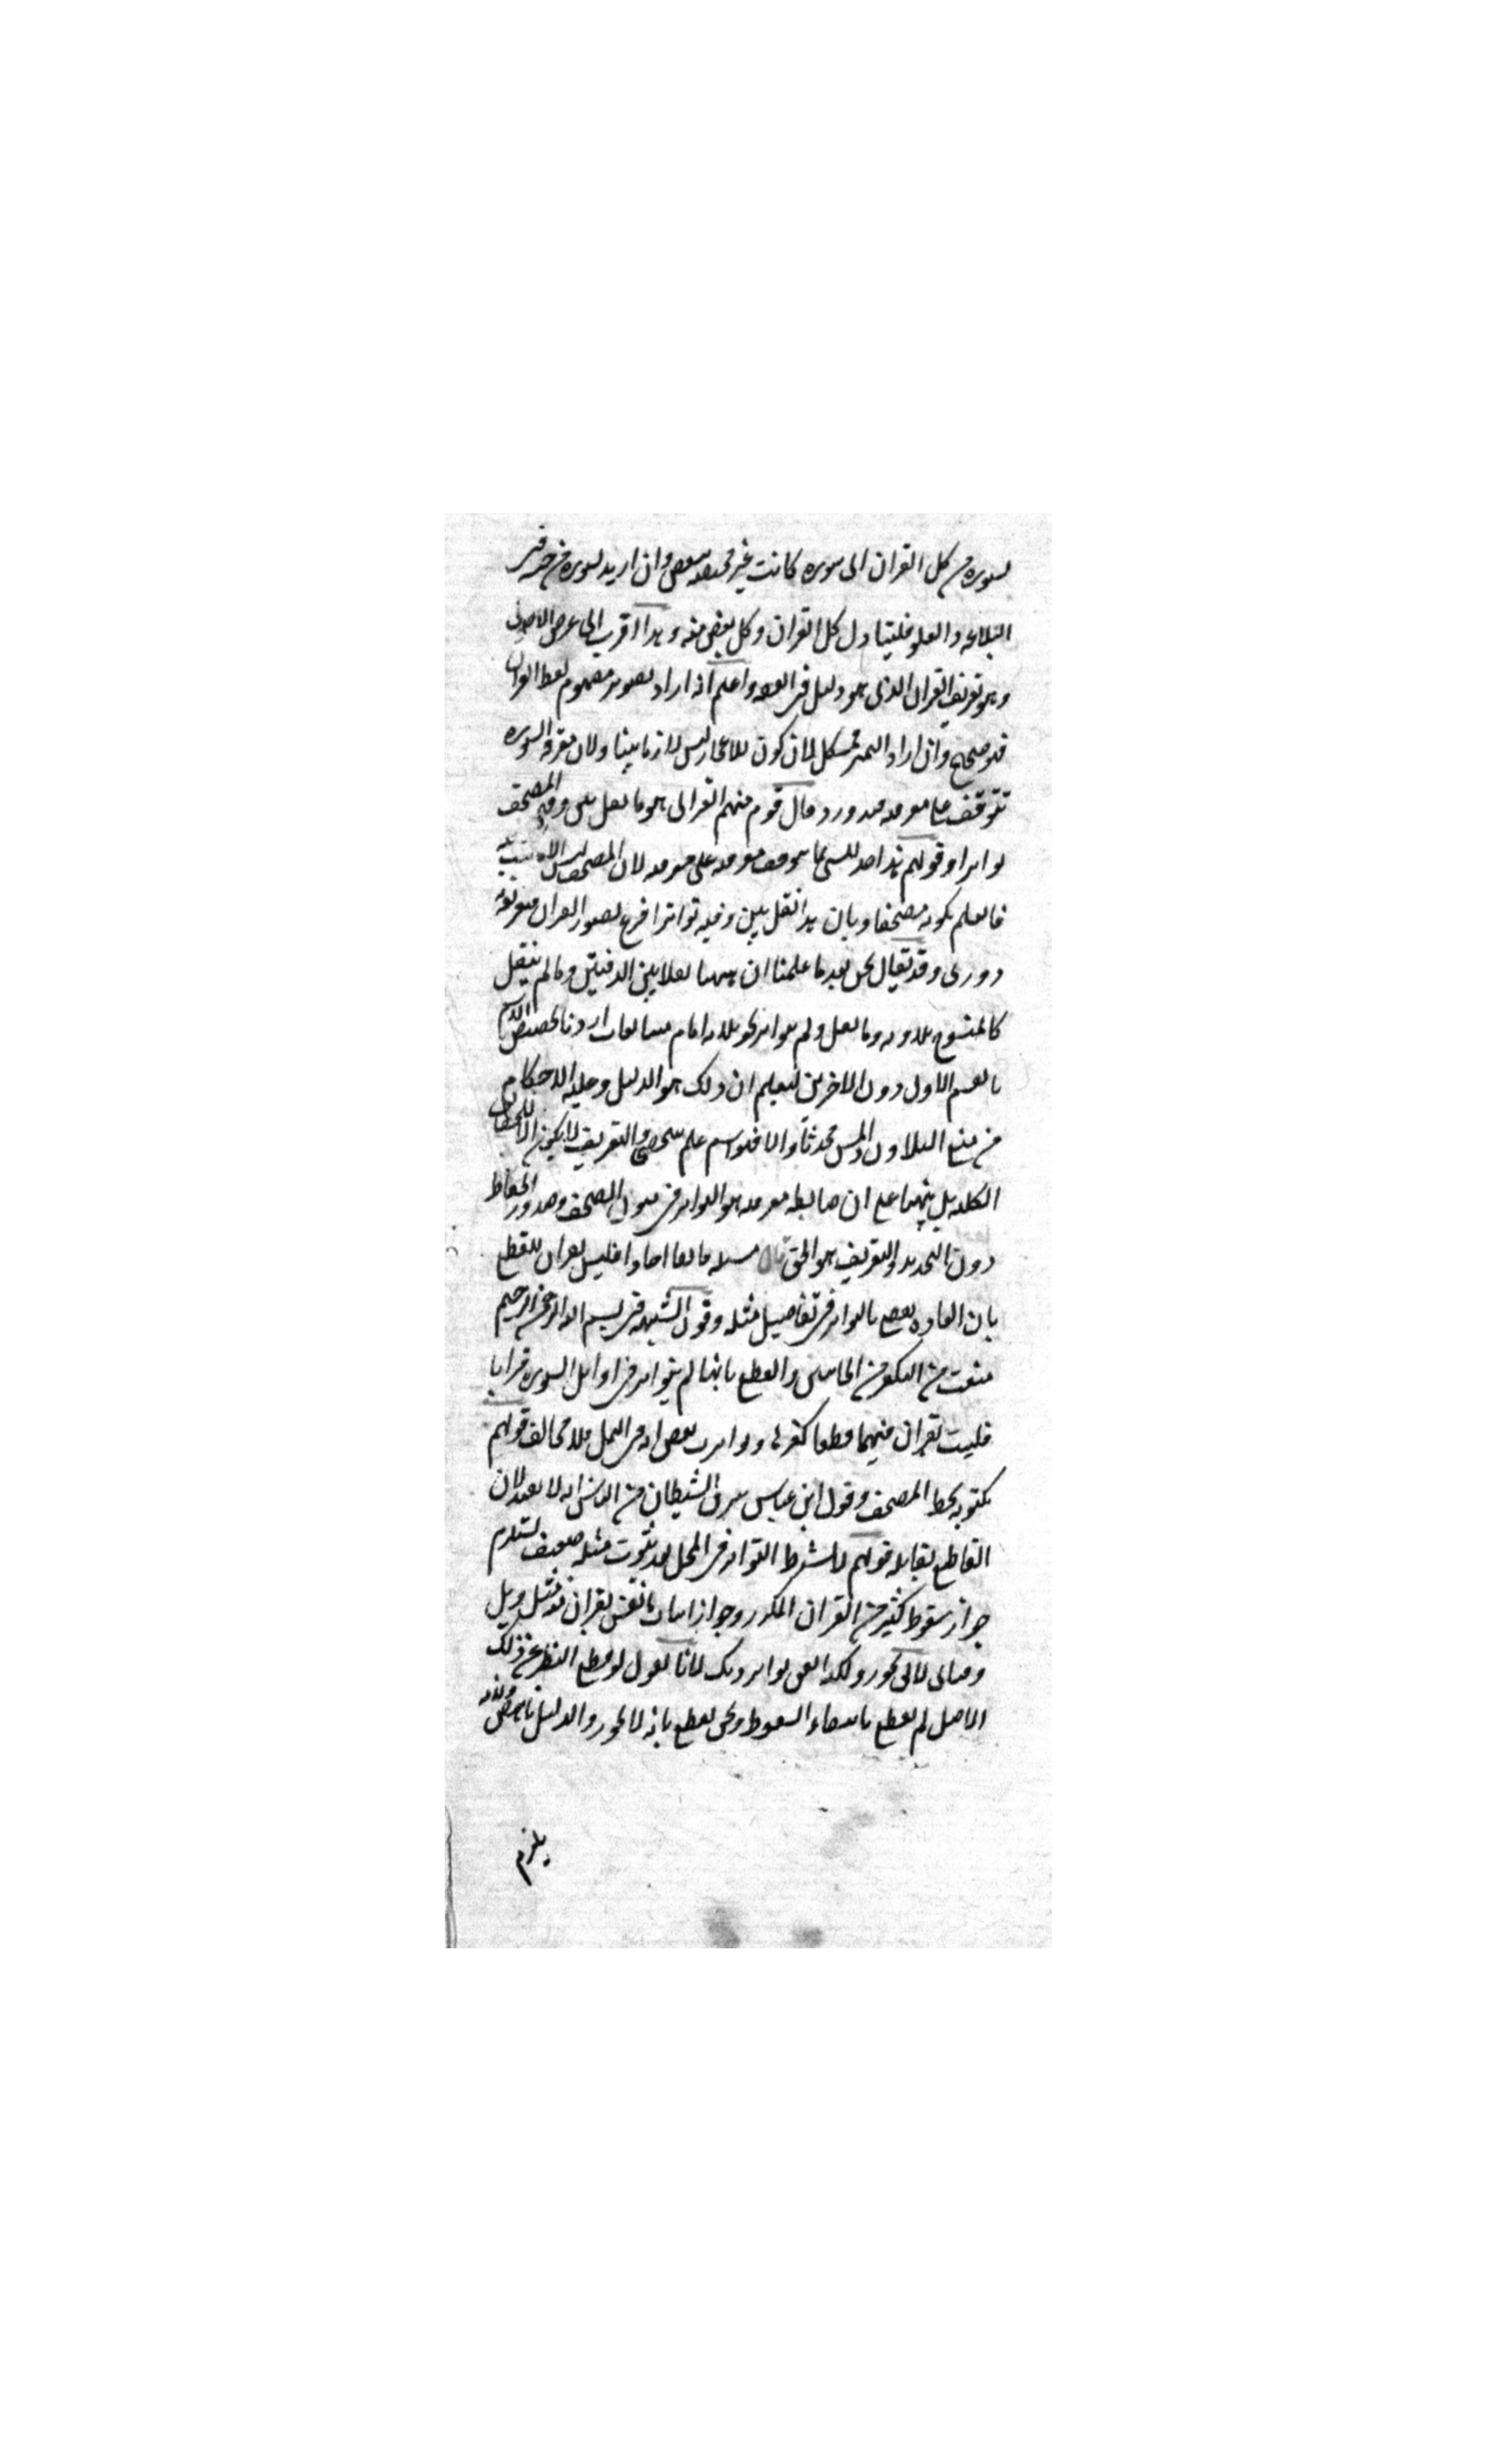 بسورة من كل القرآن الى سورة كانت غير مختصة ببعض وان اريد بسورة من جنسه في
البلاغة والعلو فليتناول كل القرآن وكل بعض منه وهذا اقرب الى غرض الاصولي
وهو تعريف القرآن الذي هو دليل في الفقه واعلم انه ان اراد تصوير مفهوم لفظ القرآن
فهو صحيح وان اراد التميز فمشكل لان كون للاعجاز ليس لازما بينا ولان معرفة السورة
تتوقف على معرفته فيدور وقال قوم منهم الغزالي هو ما نقل بين دفتي المصحف
تواترا وقولهم هذا حد للشيء بما يتوقف معرفته على معرفته لان المصحف ليس الا ما كتب
فالعلم بكونه مصحفا وبان هذا نقل بين دفتيه تواترا فرع تصور القرآن فتعريفه
دوري وقد يقال نحن بعد ما علمنا ان ههنا نقلا بين الدفتين وما لم ينقل
كالمنسوخ تلاوته وما نقل ولم يتواتر نحو ثلاثة ايام متتابعات اردنا تخصيص الاسم
بالقسم الاول دون الاخرين ليعلم ان ذلك هو الدليل وعليه الاحكام
من منع التلاوة والمس محدثا والا فهو اسم علم شخصي والتعريف لا يكون الا للحقائق
الكلية بل ينبها على ان ضابطه معرفته هو التواتر في متون المصحف وصدور الحفاظ
دون التحديد والتعريف هو الحق قال مسئلة ما نقل احادا فليس بقرآن للقطع
بان العادة تقضي بالتواتر في تفاصيل مثله وقوة الشبهة في بسم الله الرحمن الرحيم
منعت من التكفير من الجانبين والقطع بانها لم يتواتر في اوائل السور قرآنا
فليست بقرآن فيها قطعا كغيرها وتواترت بعض اية في النمل فلا مخالف قولهم
مكتوبة بخط المصحف وقول ابن عباس سرق الشيطان من الناس اية لا يفيد لان
القاطع يقابله قولهم لا يشترط التواتر في المحل بعد ثبوت مثله ضعيف يستلزم
جواز سقوط كثير من القرآن المكرر وجواز اثبات ما ليس بقرآن مثل ويل
وفباي لا يقال يجوز ولكنه اتفق تواتر ذلك لانا نقول لو قطع النظر عن ذلك
الاصل لم يقطع بانتفاء السقوط ونحن نقطع بانه لا يجوز والدليل ناهض ولانه
يلزم